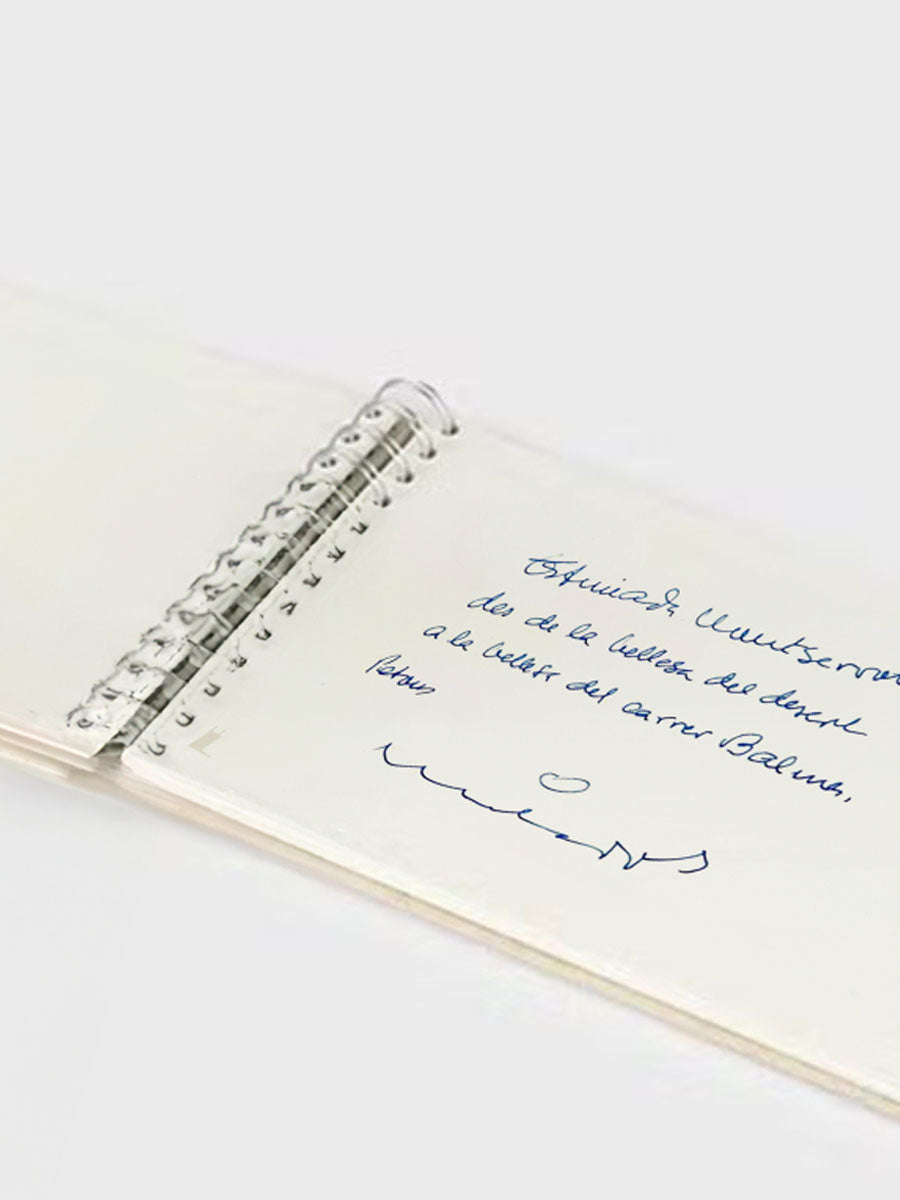 Estimada Montserrat
des de la bellesa del desert
a la bellesa del carrer Balmes,
Petons